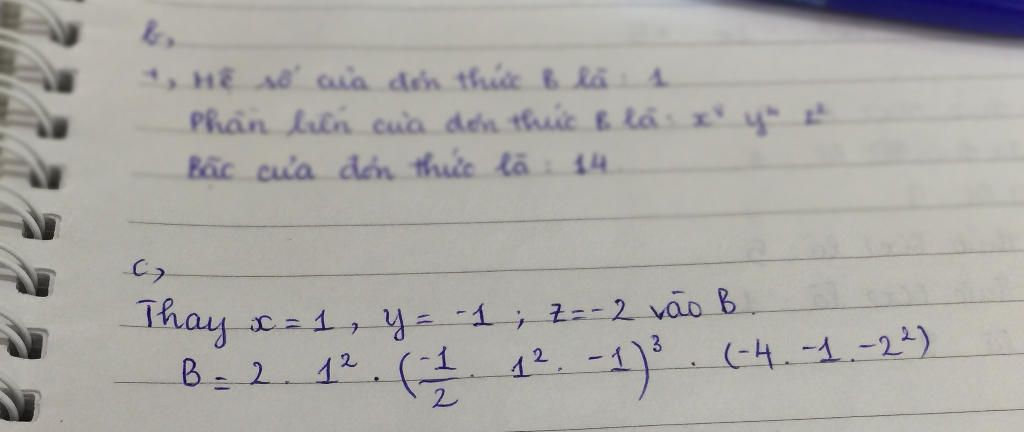 b,
+, Hệ số của đơn thức B là : 1
Phần biến của đơn thức B là : x⁸ y⁴ z²
Bậc của đơn thức là : 14
c,
Thay x = 1 , y = -1 ; z = -2 vào B.
B = 2 . 1² . (-1/2 . 1² . -1)³ . (-4 . -1 . -2²)